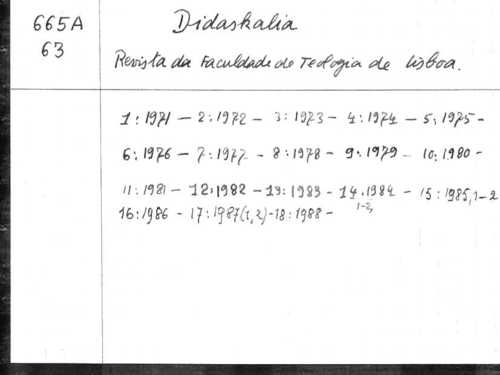 665A
63
Didaskalia
Revista da Faculdade de Teologia de Lisboa.
1:1971 – 2:1972 – 3:1973 – 4:1974 – 5:1975 –
6:1976 – 7:1977 – 8:1978 – 9:1979 – 10:1980 –
11:1981 – 12:1982 – 13:1983 – 14:1984 – 15:1985,1–2
1–2,
16:1986 – 17:1987(1,2) – 18:1988 –